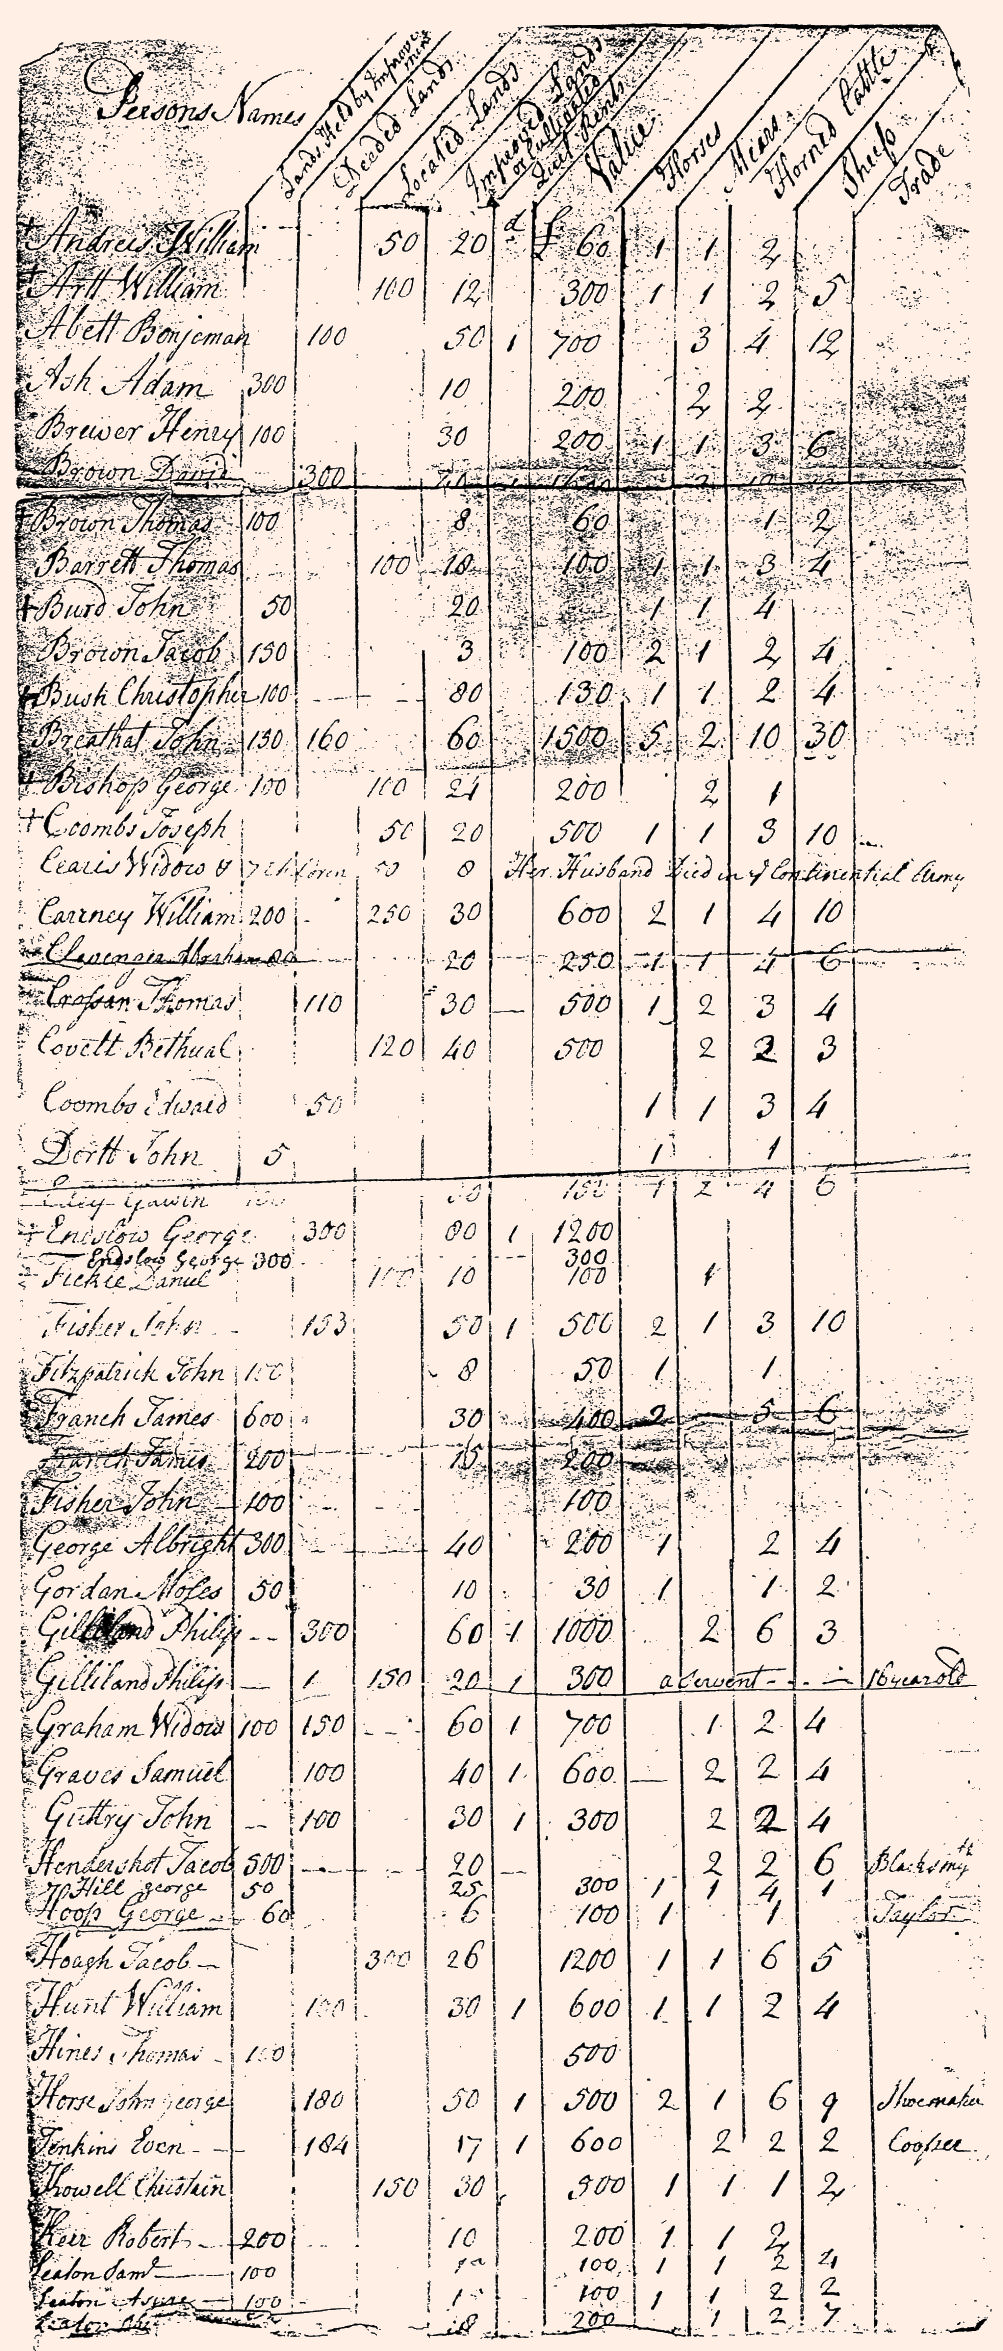 Persons Names
Lands Held by Improvement
Deeded Lands
Located Lands
Improved Lands or Cultivated
Quit Rents
Value
Horses
Mears
Horned Cattle
Sheefs
Trade
Andreis William 50 20 d £ 60 1 1 2
Artt William 100 12 300 1 1 2 5
Abett Benjeman 100 50 1 700 3 4 12
Ash Adam 300 10 200 2 2
Brewer Henry 100 30 200 1 1 3 6
Brown David 300
Brown Thomas 100 8 60 1 2
Barrett Thomas 100 10 100 1 1 3 4
Burd John 50 20 1 1 4
Brown Jacob 150 3 100 2 1 2 4
Bush Christopher 100 80 130 1 1 2 4
Breathat John 130 160 60 1500 5 2 10 30
Bishop George 100 100 24 200 2 1
Coombs Joseph 50 20 500 1 1 3 10
Cearis Widow & 7 children 50 8 Her Husband Died in ye Continential Army
Carrney William 200 250 30 600 2 1 4 10
Clavenger Abraham 80 20 250 1 1 4 6
Crossan Thomas 110 30 500 1 2 3 4
Covett Bethual 120 40 500 2 2 3
Coombs Edward 50 1 1 3 4
Dortt John 5 1 1
Gawin 100 30 150 1 2 4 6
Enislow George 300 80 1 1200
Enoslow George 300 300
Fickie Daniel 100 10 100 1
Fisher John 153 50 1 500 2 1 3 10
Fitzpatrick John 100 8 50 1 1
Franch James 600 30 400 2 5 6
Franch James 200 15 200
Fisher John 100 100
George Albright 300 40 200 1 2 4
Gordan Moses 50 10 30 1 1 2
Gilliland Philip 300 60 1 1000 2 6 3
Gilliland Philip 1 150 20 1 300 a Cervent 16 year old
Graham Widow 100 150 60 1 700 1 2 4
Graves Samuel 100 40 1 600 2 2 4
Guttry John 100 30 1 300 2 2 4
Hendershot Jacob 500 20 2 2 6 Blacksmyth
Hill george 50 25 300 1 1 4 1
Hoop George 60 6 100 1 1 Taylor
Hoagh Jacob 300 26 1200 1 1 6 5
Hunt William 100 30 1 600 1 1 2 4
Hines Thomas 100 500
Horse John george 180 50 1 500 2 1 6 9 Shoemaker
Jenkins Even 184 17 1 600 2 2 2 Cooper
Howell Christain 150 30 500 1 1 1 2
Keir Robert 200 10 200 1 1 2
Leaton Saml 100 100 1 1 2 4
Leaton 100 100 1 1 2 2
Leaton 18 200 1 2 7